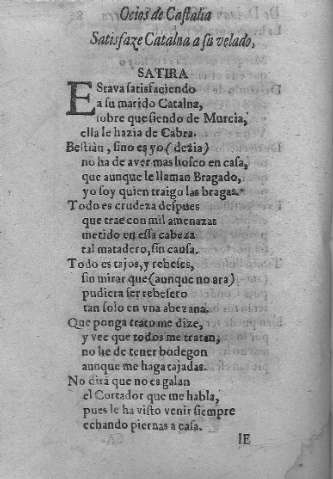 Ocios de Castalia
Satisfaze Catalna a su velado,
SATIRA
EStava satisfaciendo
a su marido Catalna,
sobre que siendo de Murcia,
ella le hazia de Cabra.
Beltran, sino es yo (dezia)
no ha de aver mas hosco en casa,
que aunque le llaman Bragado,
yo soy quien traigo las bragas.
Todo es crudeza despues
que trae con mil amenazas
metido en essa cabeza
tal matadero, sin causa.
Todo es tajos, y reveses,
sin mirar que (aunque no ara)
pudiera ser rebesero
tan solo en vna abezana.
Que ponga trato me dize,
y vee que todos me tratan,
no he de tener bodegon
aunque me haga tajadas.
No dirà que no es galan
el Cortador que me habla,
pues le ha visto venir siempre
echando piernas a casa.